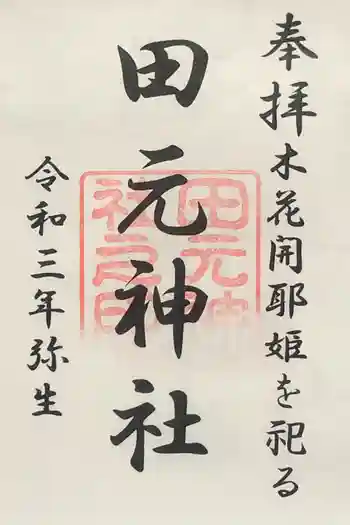 奉拝 木花開耶姫を祀る
田元神社
田元神社之印
令和三年弥生